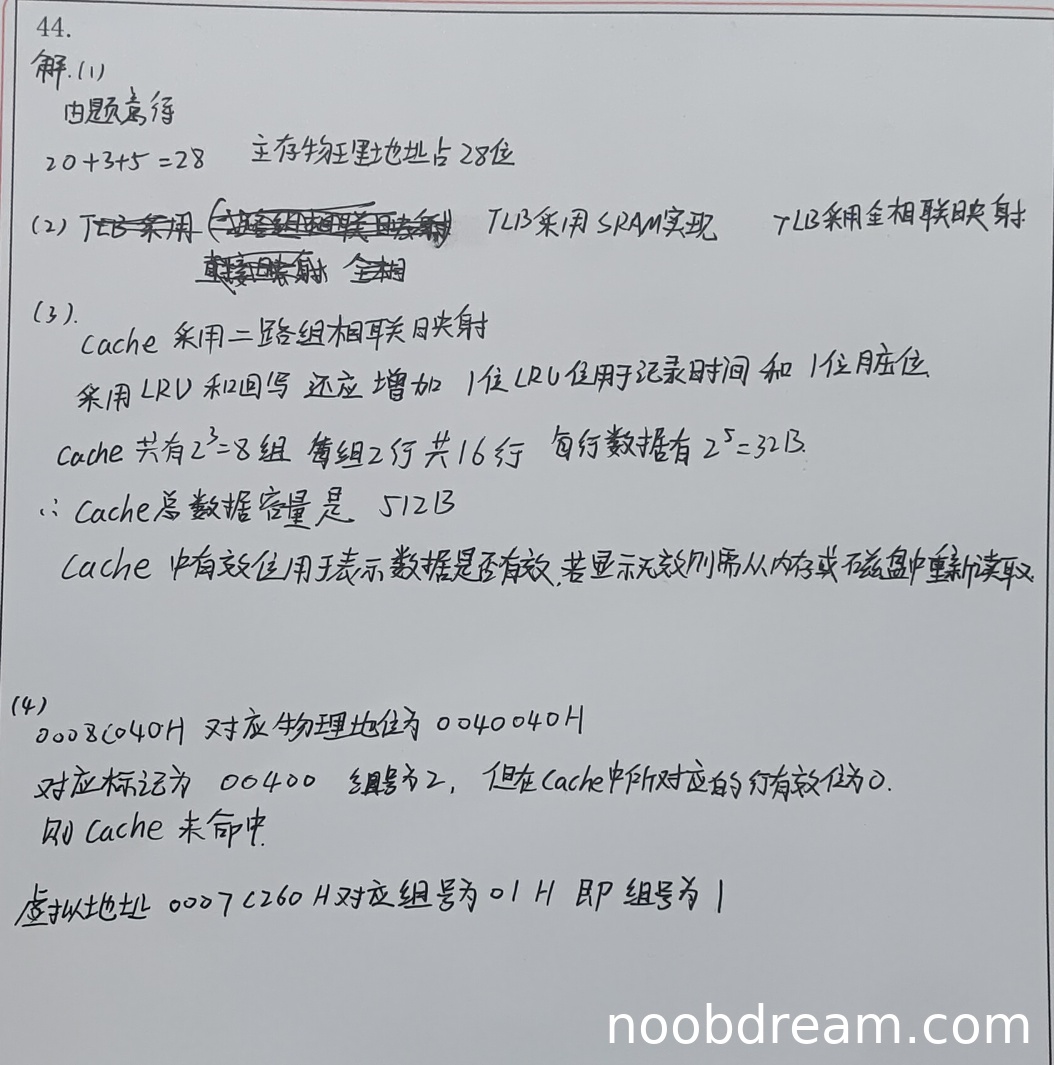 44.
解.(1)
由题意得
20+3+5=28 主存物理地址占28位
(2) TLB采用 TLB采用SRAM实现 TLB采用全相联映射
直接映射 全相
(3).
Cache 采用二路组相联映射
采用LRU和回写 还应增加 1位LRU位用于记录时间 和 1位脏位.
Cache 共有2³=8组 每组2行共16行 每行数据有 2⁵=32B.
∴ Cache总数据容量是 512B
Cache 中有效位用于表示数据是否有效,若显示无效则需从内存或磁盘中重新读取.
(4)
0008C040H 对应物理地位为 0040040H
对应标记为 00400 组号为2, 但在Cache中所对应的行有效位为0.
则 Cache 未命中.
虚拟地址 0007C260H对应组号为01H 即 组号为1
noobdream.com